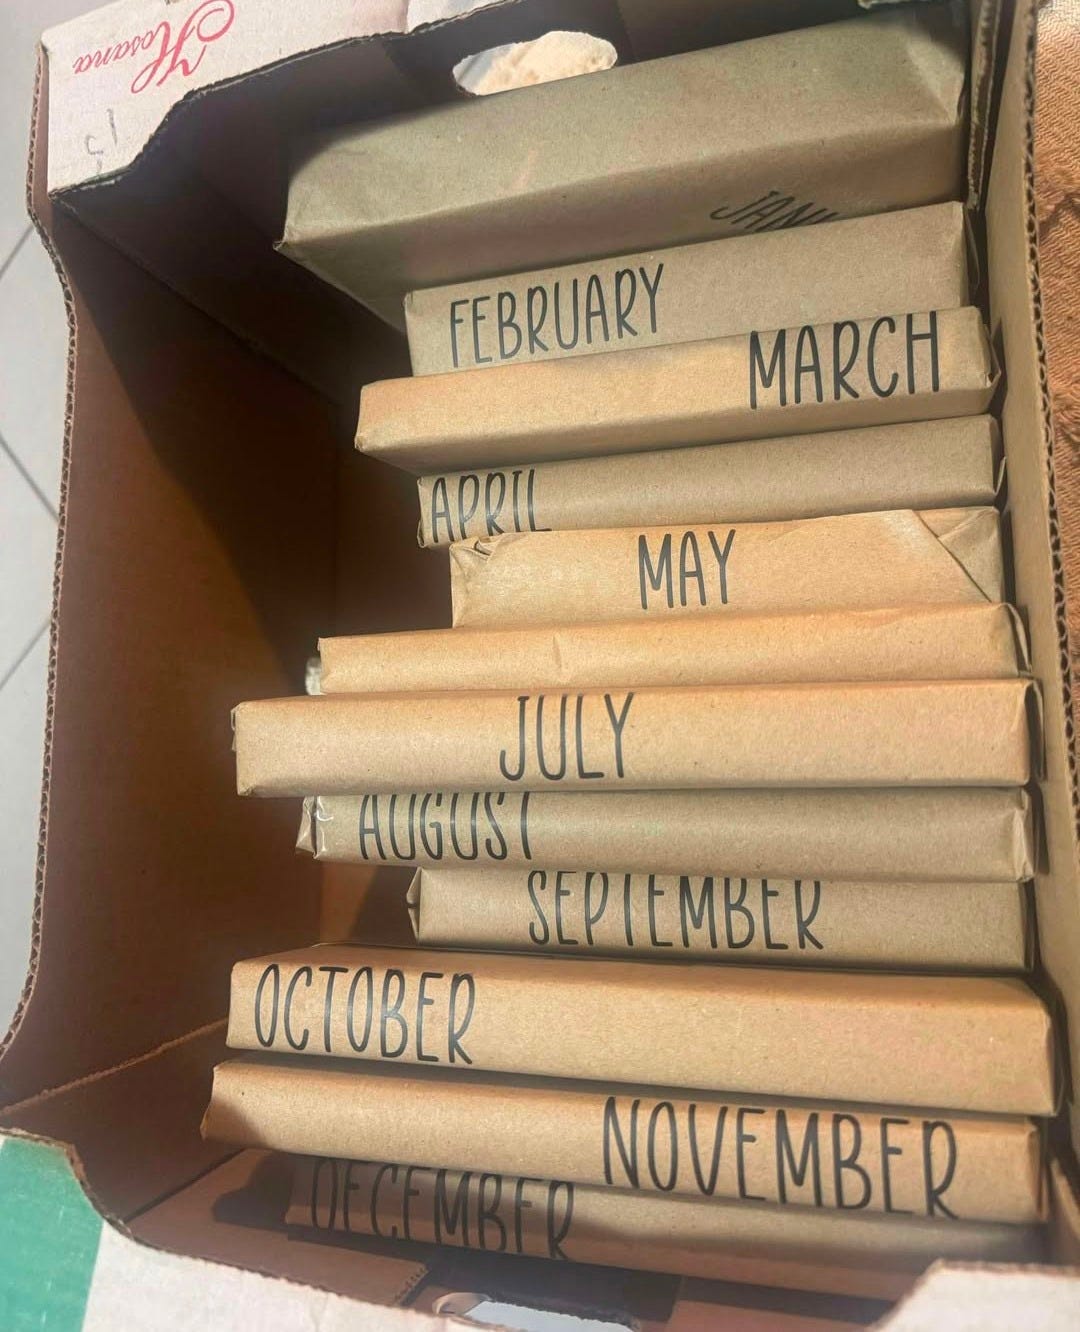 Hosana
JANU
FEBRUARY
MARCH
APRIL
MAY
JULY
AUGUST
SEPTEMBER
OCTOBER
NOVEMBER
DECEMBER